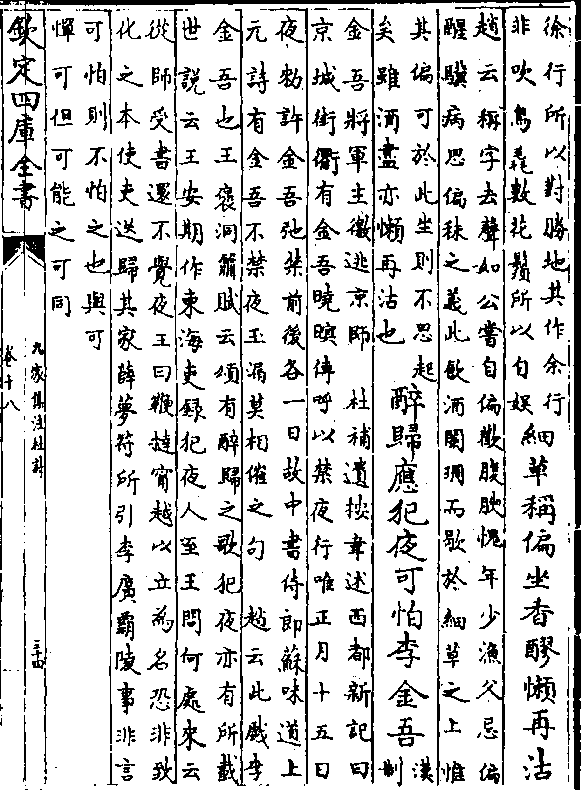 徐行所以對勝地其作余行
非吹鳥毳數花鬚所以自娛
細草稱偏坐香醪懶再沽
趙云稱字去聲如公嘗自偏勸腹腴愧年少漁父忌偏
醒驥病思偏秣之義此飲酒闌珊而歇於細草之上惟
其偏可於此坐則不思起
矣雖酒盡亦懶再沽也
醉歸應犯夜可怕李金吾
漢
制
金吾將軍主徼巡京師　杜補遺按韋述西都新記曰
京城街衢有金吾曉暝傳呼以禁夜行唯正月十五日
夜勑許金吾弛禁前後各一日故中書侍郎蘇味道上
元詩有金吾不禁夜玉漏莫相催之句　趙云此戲李
金吾也王褒洞簫賦云頌有醉歸之歌犯夜亦有所載
世說云王安期作東海吏録犯夜人至王問何處來云
從師受書還不覺夜王曰鞭撻甯越以立為名恐非致
化之本使吏送歸其家薛夢符所引李廣霸陵事非言
可怕則不怕之也與可
憚可但可能之可同
欽定四庫全書
九家集注杜詩
卷十八
三十四